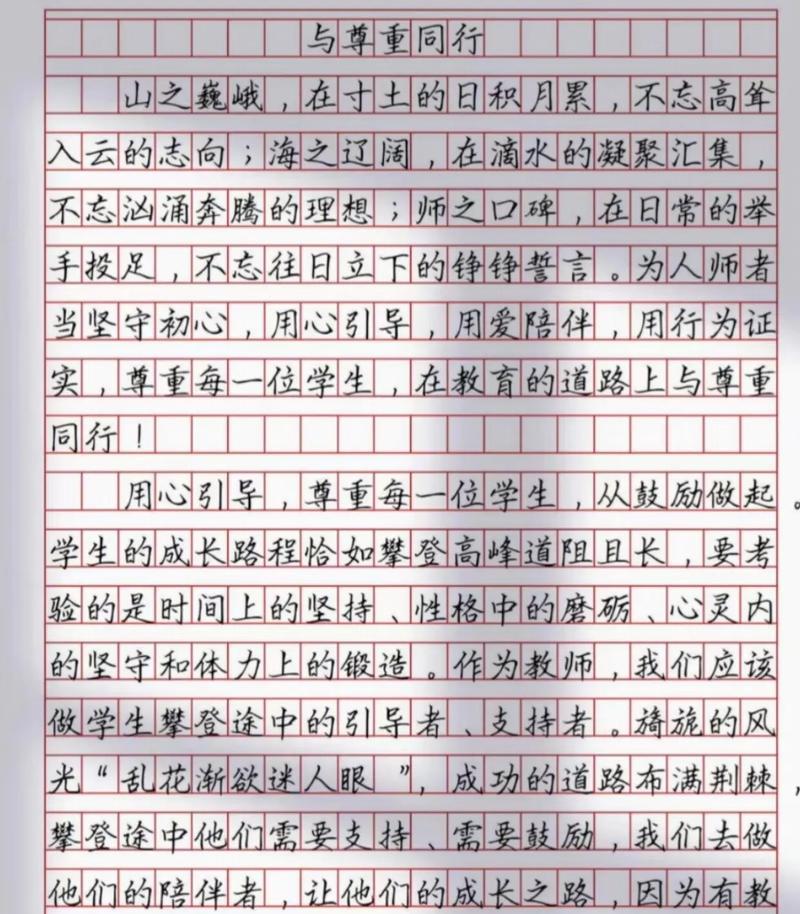 与尊重同行
山之巍峨，在寸土的日积月累，不忘高耸
入云的志向；海之辽阔，在滴水的凝聚汇集，
不忘汹涌奔腾的理想；师之口碑，在日常的举
手投足，不忘往日立下的铮铮誓言。为人师者
当坚守初心，用心引导，用爱陪伴，用行为证
实，尊重每一位学生，在教育的道路上与尊重
同行！
用心引导，尊重每一位学生，从鼓励做起。
学生的成长路程恰如攀登高峰道阻且长，要考
验的是时间上的坚持、性格中的磨砺、心灵内
的坚守和体力上的锻造。作为教师，我们应该
做学生攀登途中的引导者、支持者。旖旎的风
光“乱花渐欲迷人眼”，成功的道路布满荆棘，
攀登途中他们需要支持、需要鼓励，我们去做
他们的陪伴者，让他们的成长之路，因为有教